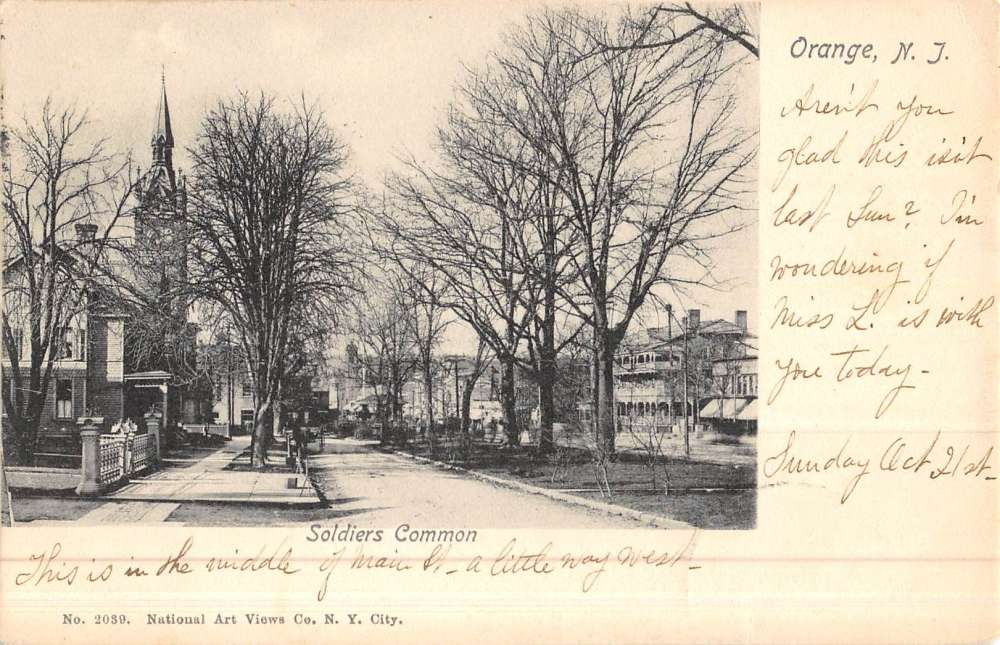 Orange, N. J.
Aren't you
glad this isn't
last Sun? I'm
wondering if
Miss L. is with
you today-
Sunday Oct 21st-
Soldiers Common
This is in the middle of Main St- a little way west-
No. 2039. National Art Views Co. N. Y. City.